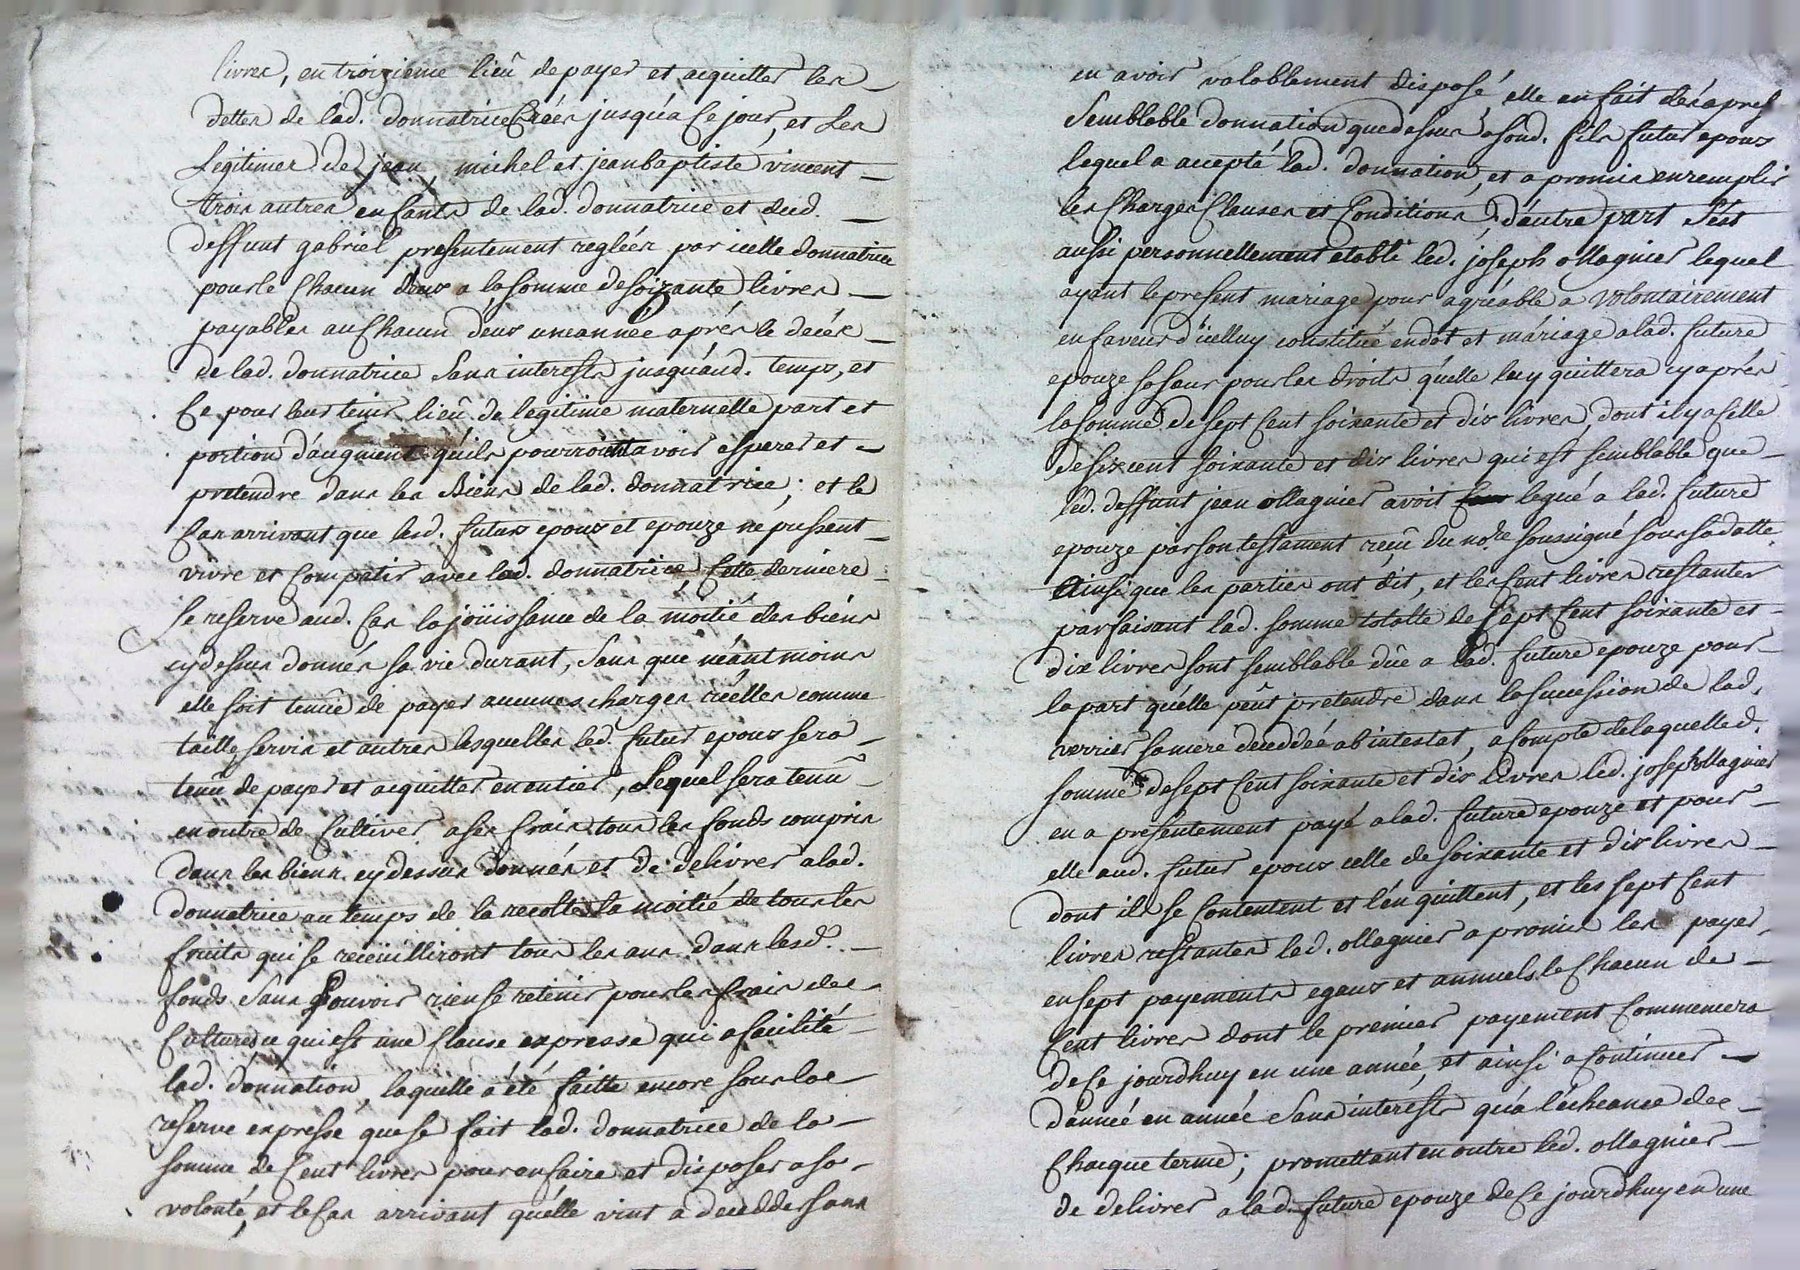 livres, en troizieme lieû de payer et acquitter les
dettes de lad. donnatrice Créés jusqu'a Ce jour, et Les
Legitimes de jean, michel et jean baptiste vincent
trois autres enfants de lad. donnatrice et dud.
deffunt gabriel presentement regléés par icelle donnatrice
pour le Chacun deux a la somme de soixante livres
payables au Chacun deux une année aprés le decés
de lad. donnatrice Sans interests jusqu'aud. temps, et
Ce pour leur tenir lieû de legitime maternelle part et
portion d'augment qu'ils pourroint avoir esperer et
pretendre dans les Biens de lad. donnatrice; et le
Cas arrivant que lesd. futurs epoux et epouze ne pussent
vivre et Compatir avec lad. donnatrice Cette derniere
se reserve aud. Cas la joüissance de la moitié des biéns
cy dessus donnés sa vie durant, Sans que néantmoins
elle soit tenüe de payer aucunes charges réelles comme
taille, servis et autres lesquelles led. futur epoux sera
tenu de payer et acquitter en entier, Lequel sera tenû
en outre de Cultiver a ses frais tous les fonds compris
dans les biens cy dessus donnés et de delivrer a lad.
donnatrice au temps de la recolte la moitié de tous les
fruits qui se recüeilliront tous les ans dans lesd.
fonds Sans Pouvoir rien se retenir pour les frais de
Culture ce qui est une Clause expresse qui a facilité
lad. donnation, laquelle a été faitte encore sous la
reserve expresse que se fait lad. donnatrice de la
somme de Cent livres pour en faire et disposer a sa
volonté, et le Cas arrivant qu'elle vint a deceddér sans
en avoir valablement disposé, elle en fait dés a present
Semblable donnation que dessus a sond. fils futur epoux
lequel a accepté lad. donnation, et a promis en remplir
les Charges Clauses et Conditions, d'autre part S'est
aussi personnellement etabli led. joseph ollagnier lequel
ayant le present mariage pour agréable a volontairement
en faveur d'icelluy constitué en dot et mariage a lad. future
epouze sa sœur pour les droits qu'elle luy quittera cy aprés
la somme de sept Cent soixante et dix livres, dont il y a celle
de six cent soixante et dix livres qui est semblable que
led. deffunt jean ollagnier avoit legué a lad. future
epouze par son testament reçû du no.re soussigné sous sa datte
Ainsi que les parties ont dit, et les Cent livres restantes
parfaisant lad. somme totalle de sept Cent soixante et
dix livres sont semblable düe a lad. future epouze pour
la part qu'elle peût pretendre dans la succession de lad.
verrier sa mere deceddéé ab intestat, a Compte de laquelle d.
somme de sept Cent soixante et dix livres led. joseph ollagnier
en a presentement payé a lad. future epouze et pour
elle aud. futur epoux celle de soixante et dix livres
dont ils se Contentent et l'en quittent, et les sept Cent
livres restantes led. ollagnier a promis les payer
en sept payements egaux et annuels le Chacun de
Cent livres dont le premier payement Commencera
de Ce jourdhuy en une année, et ainsi a Continuer
d'année en année Sans interests qu'a l'écheance de
Chacque terme; promettant en outre led. ollagnier
de delivrer a lad. future epouze de Ce jourdhuy en une